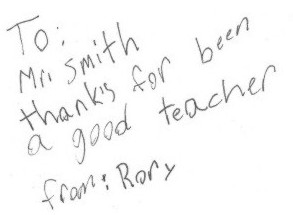 To:
Mr. Smith
thanks for been
a good teacher
from: Rory